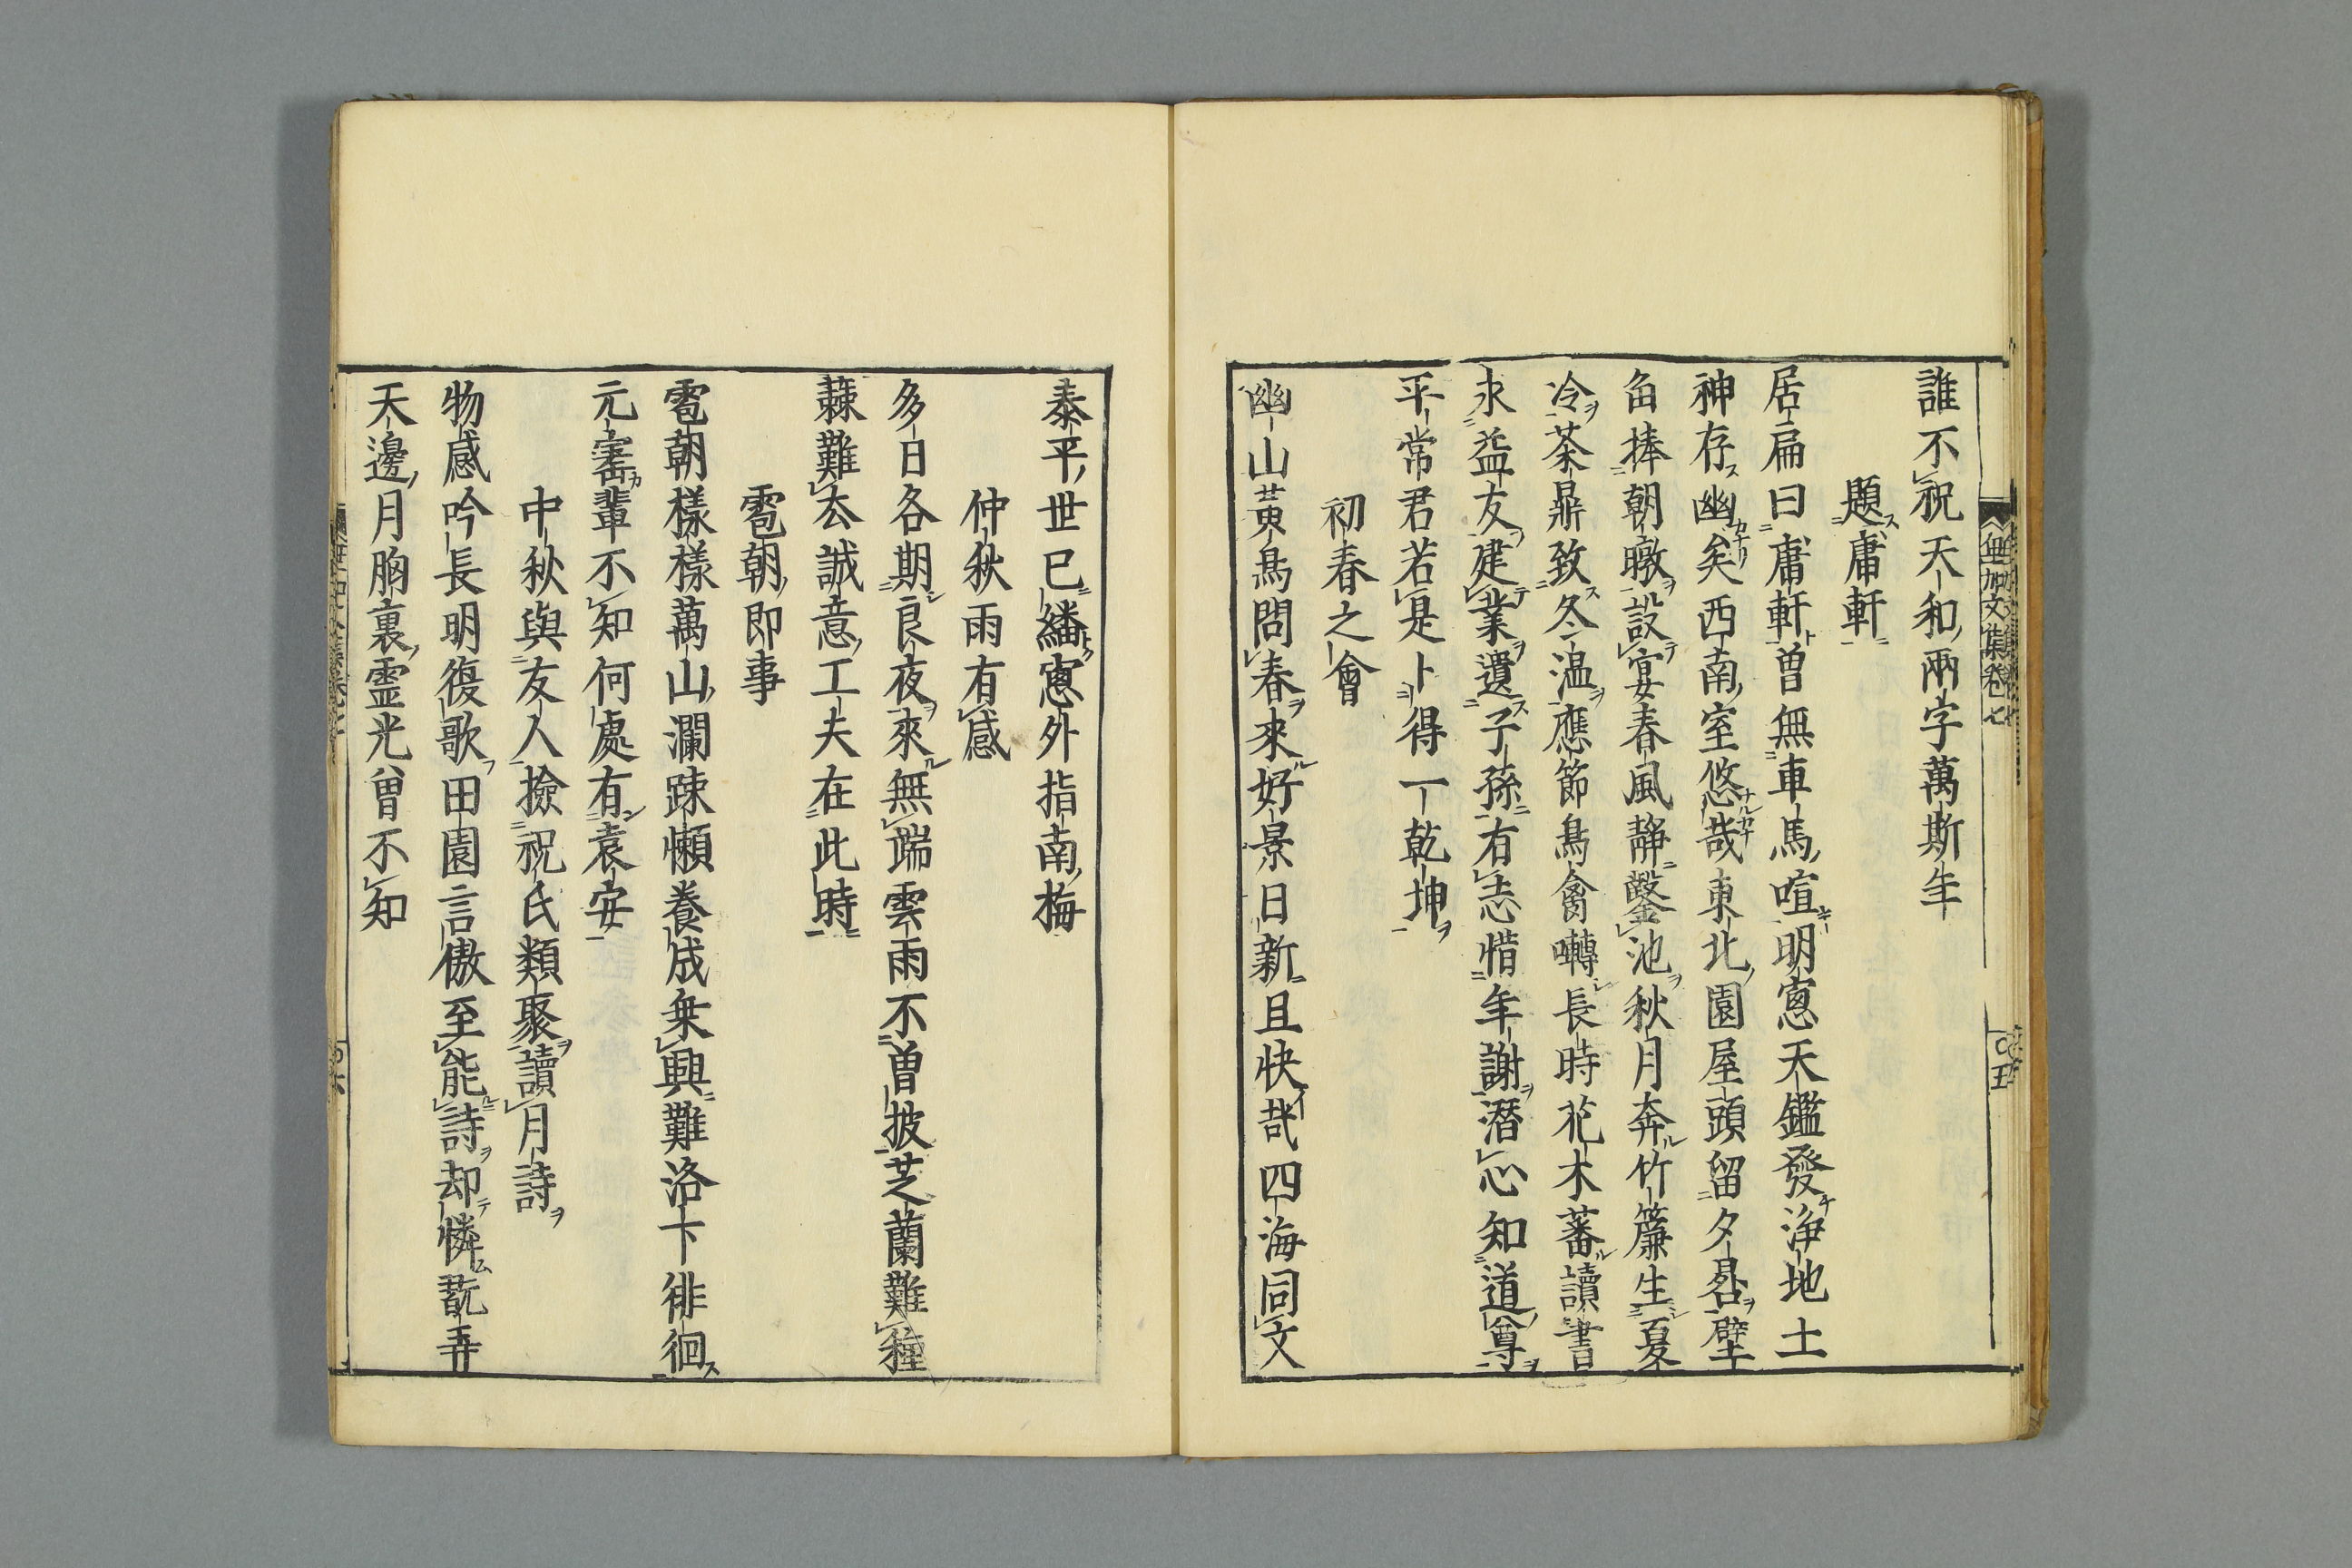 誰不祝天和兩字萬斯年
題庸軒
居扁曰庸軒曽無車馬喧明窻天鑑發淨地土
神存幽矣西南室悠哉東北園屋頭留夕晷壁
角捧朝暾設宴春風靜鑿池秋月奔竹簾生夏
冷茶鼎致冬温應節鳥禽囀長時花木蕃讀書
求益友建業遺子孫有志惜年謝潛心知道尊
平常君若是卜得一乾坤
初春之會
幽山黃鳥問春來好景日新且快哉四海同文
泰平世已繙窻外指南梅
仲秋雨有感
多日各期良夜來無端雲雨不曽披芝蘭難種
蕀難去誠意工夫在此時
雪朝即事
雪朝樣樣萬山瀾踈懶養成乗興難洛下徘徊
元寄輩不知何處有袁安
中秋與友人撿祝氏類聚讀月詩
物感吟長明復歌田園言傲至能詩却憐翫弄
天邊月胸裏霊光曽不知
無加文集卷七
〇五